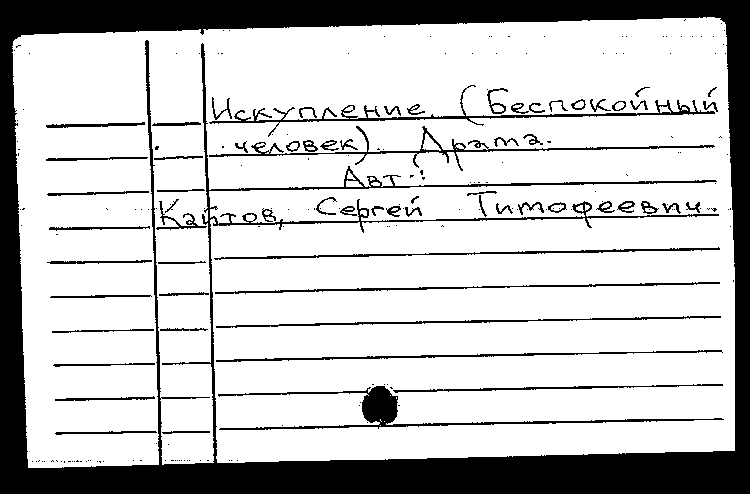 Искупление. (Беспокойный
человек). Драма.
Авт.:
Кайтов, Сергей Тимофеевич.